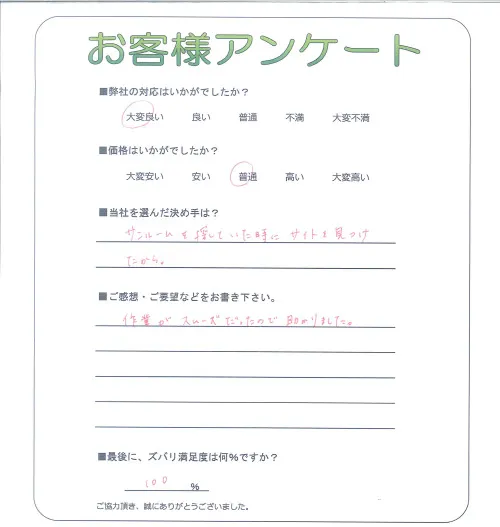 お客様アンケート
■弊社の対応はいかがでしたか？
大変良い 良い 普通 不満 大変不満
■価格はいかがでしたか？
大変安い 安い 普通 高い 大変高い
■当社を選んだ決め手は？
サンルームを探していた時にサイトを見つけ
たから。
■ご感想・ご要望などをお書き下さい。
作業がスムーズだったので助かりました。
■最後に、ズバリ満足度は何%ですか？
100 %
ご協力頂き、誠にありがとうございました。